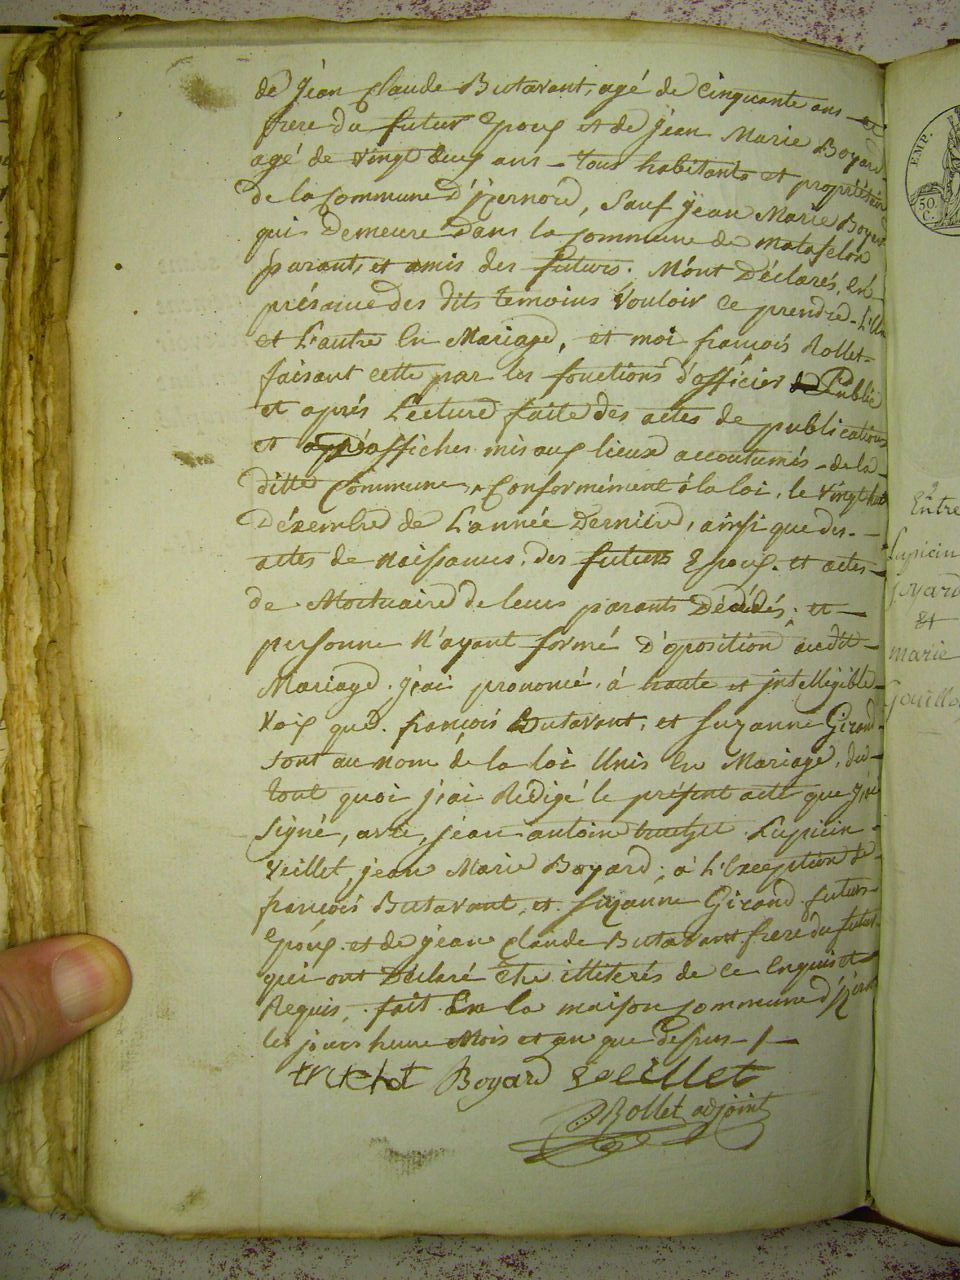 de jean Claude Butavant, agé de cinquante ans et
frere du futur Epoux et de jean Marie Boyard
agé de vingt deux ans - tous habitants et propriétair
de la Commune d'jzernore, Sauf jean Marie Boyard
qui demeure dans la commune de matafelon
parants et amis des futurs. M'ont Déclarés, en
présance des dits temoins Vouloir ce prendre L'Un
et L'autre En Mariage, et moi françois Rollet
faisant cette par les fonctions d'officier Public
et aprés Lecture faite des actes de publications
et affiches mis aux lieux accoutumés de la
ditte Commune, Conformément à la loi, le vingt huit
Dézembre de L'année Derniere, ainsi que des
actes de naissances, des futurs Epoux. et actes
de Mortuaire de leurs parants Décédés, et
personne N'ayant formé d'oposition audit
Mariage. j'ai prononcé, à haute et intelligible
Voix que françois Butavant, et Suzanne Girand
sont au nom de la loi Unis En Mariage, de
tout quoi j'ai Redigé le présent acte que j'ai
Signé, avec, jean antoine truchet Lupicin
Veillet, jean Marie Boyard, à L'Exception de
françois Butavant, et Suzanne Girand futurs
Epoux et de jean Claude Butavant frere du futur
qui ont Déclaré etre illiterés de ce Enquis et
Requis, fait En la maison Commune d'jzernore
les jours heure Mois et an que dessus
truchet Boyard veillet
Rollet adjoint
EMP.
50
C.
Entre
Lupicin
joyard
Et
marie